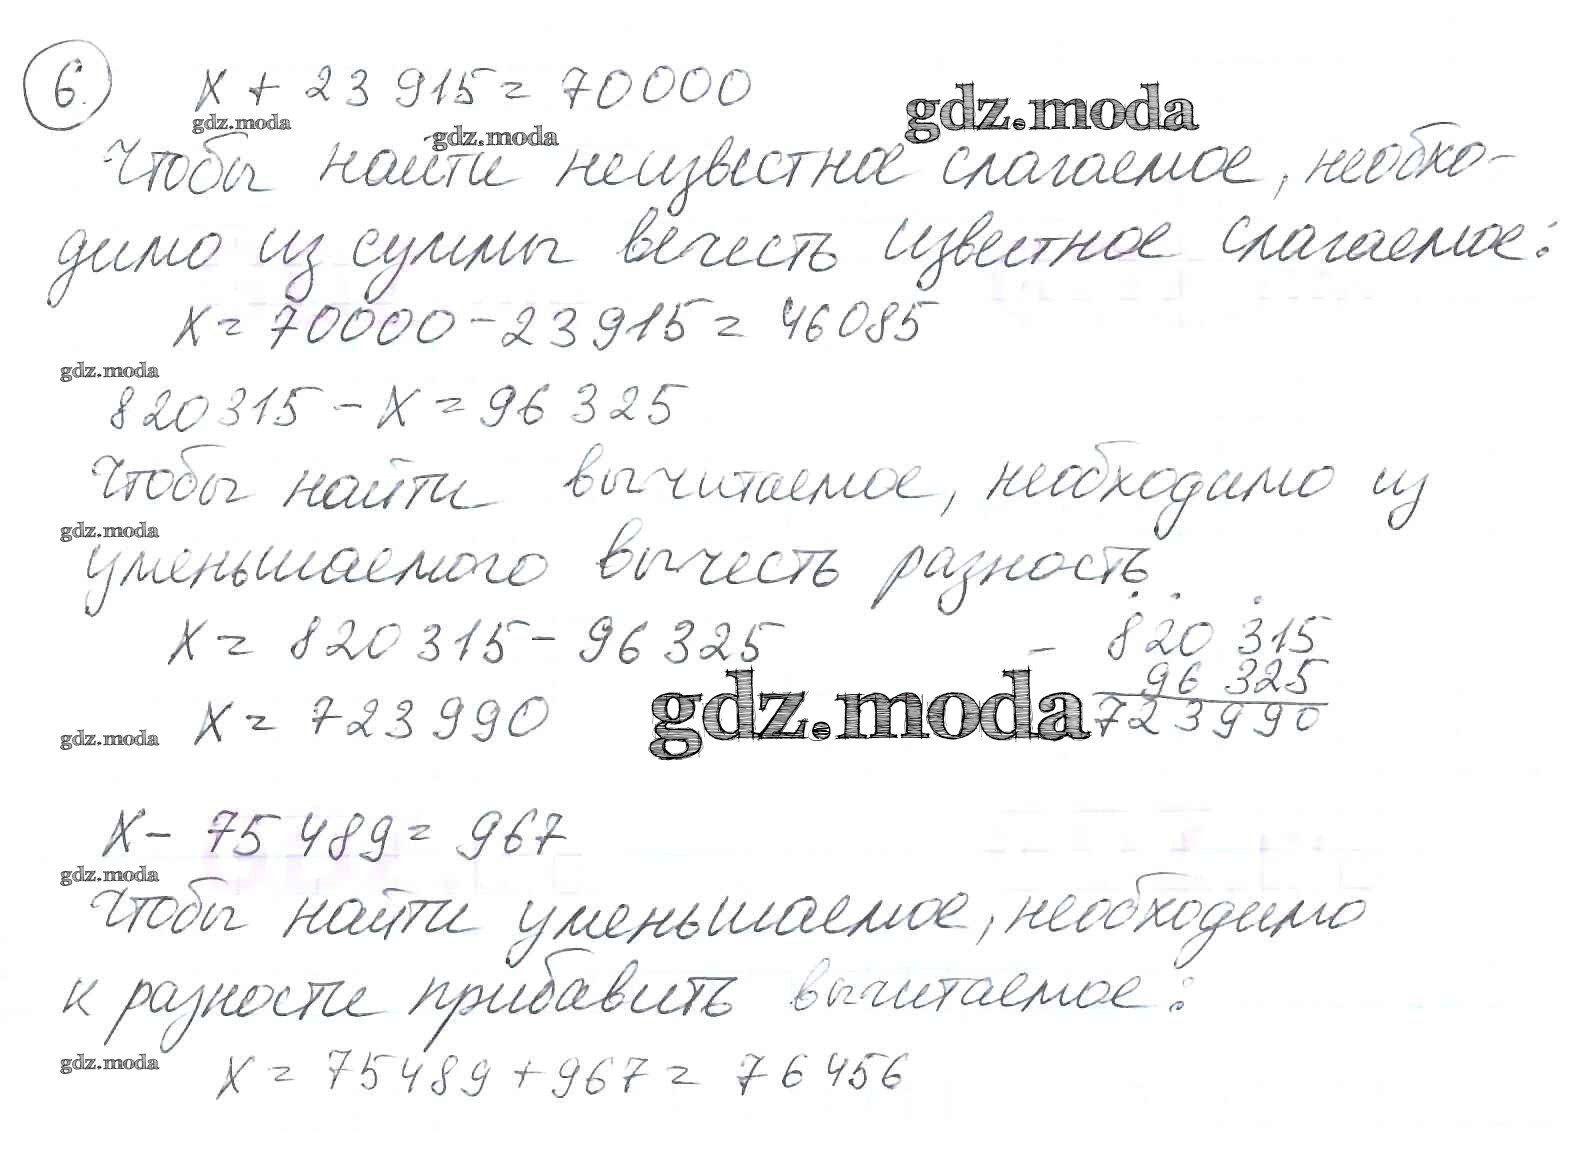 6.
x + 23 915 = 70000
gdz.moda
gdz.moda
gdz.moda
Чтобы найти неизвестное слагаемое, необхо-
димо из суммы вечесть известное слагаемое:
x = 70000 - 23915 = 46085
gdz.moda
820315 - x = 96 325
Чтобы найти вычитаемое, необходимо из
gdz.moda
уменьшаемого вычесть разность.
x = 820 315 - 96 325
x = 723 990
- 820 315
96 325
723990
gdz.moda
gdz.moda
x - 75 489 = 967
gdz.moda
Чтобы найти уменьшаемое, необходимо
к разности прибавить вычитаемое:
gdz.moda
x = 75489 + 967 = 76 456